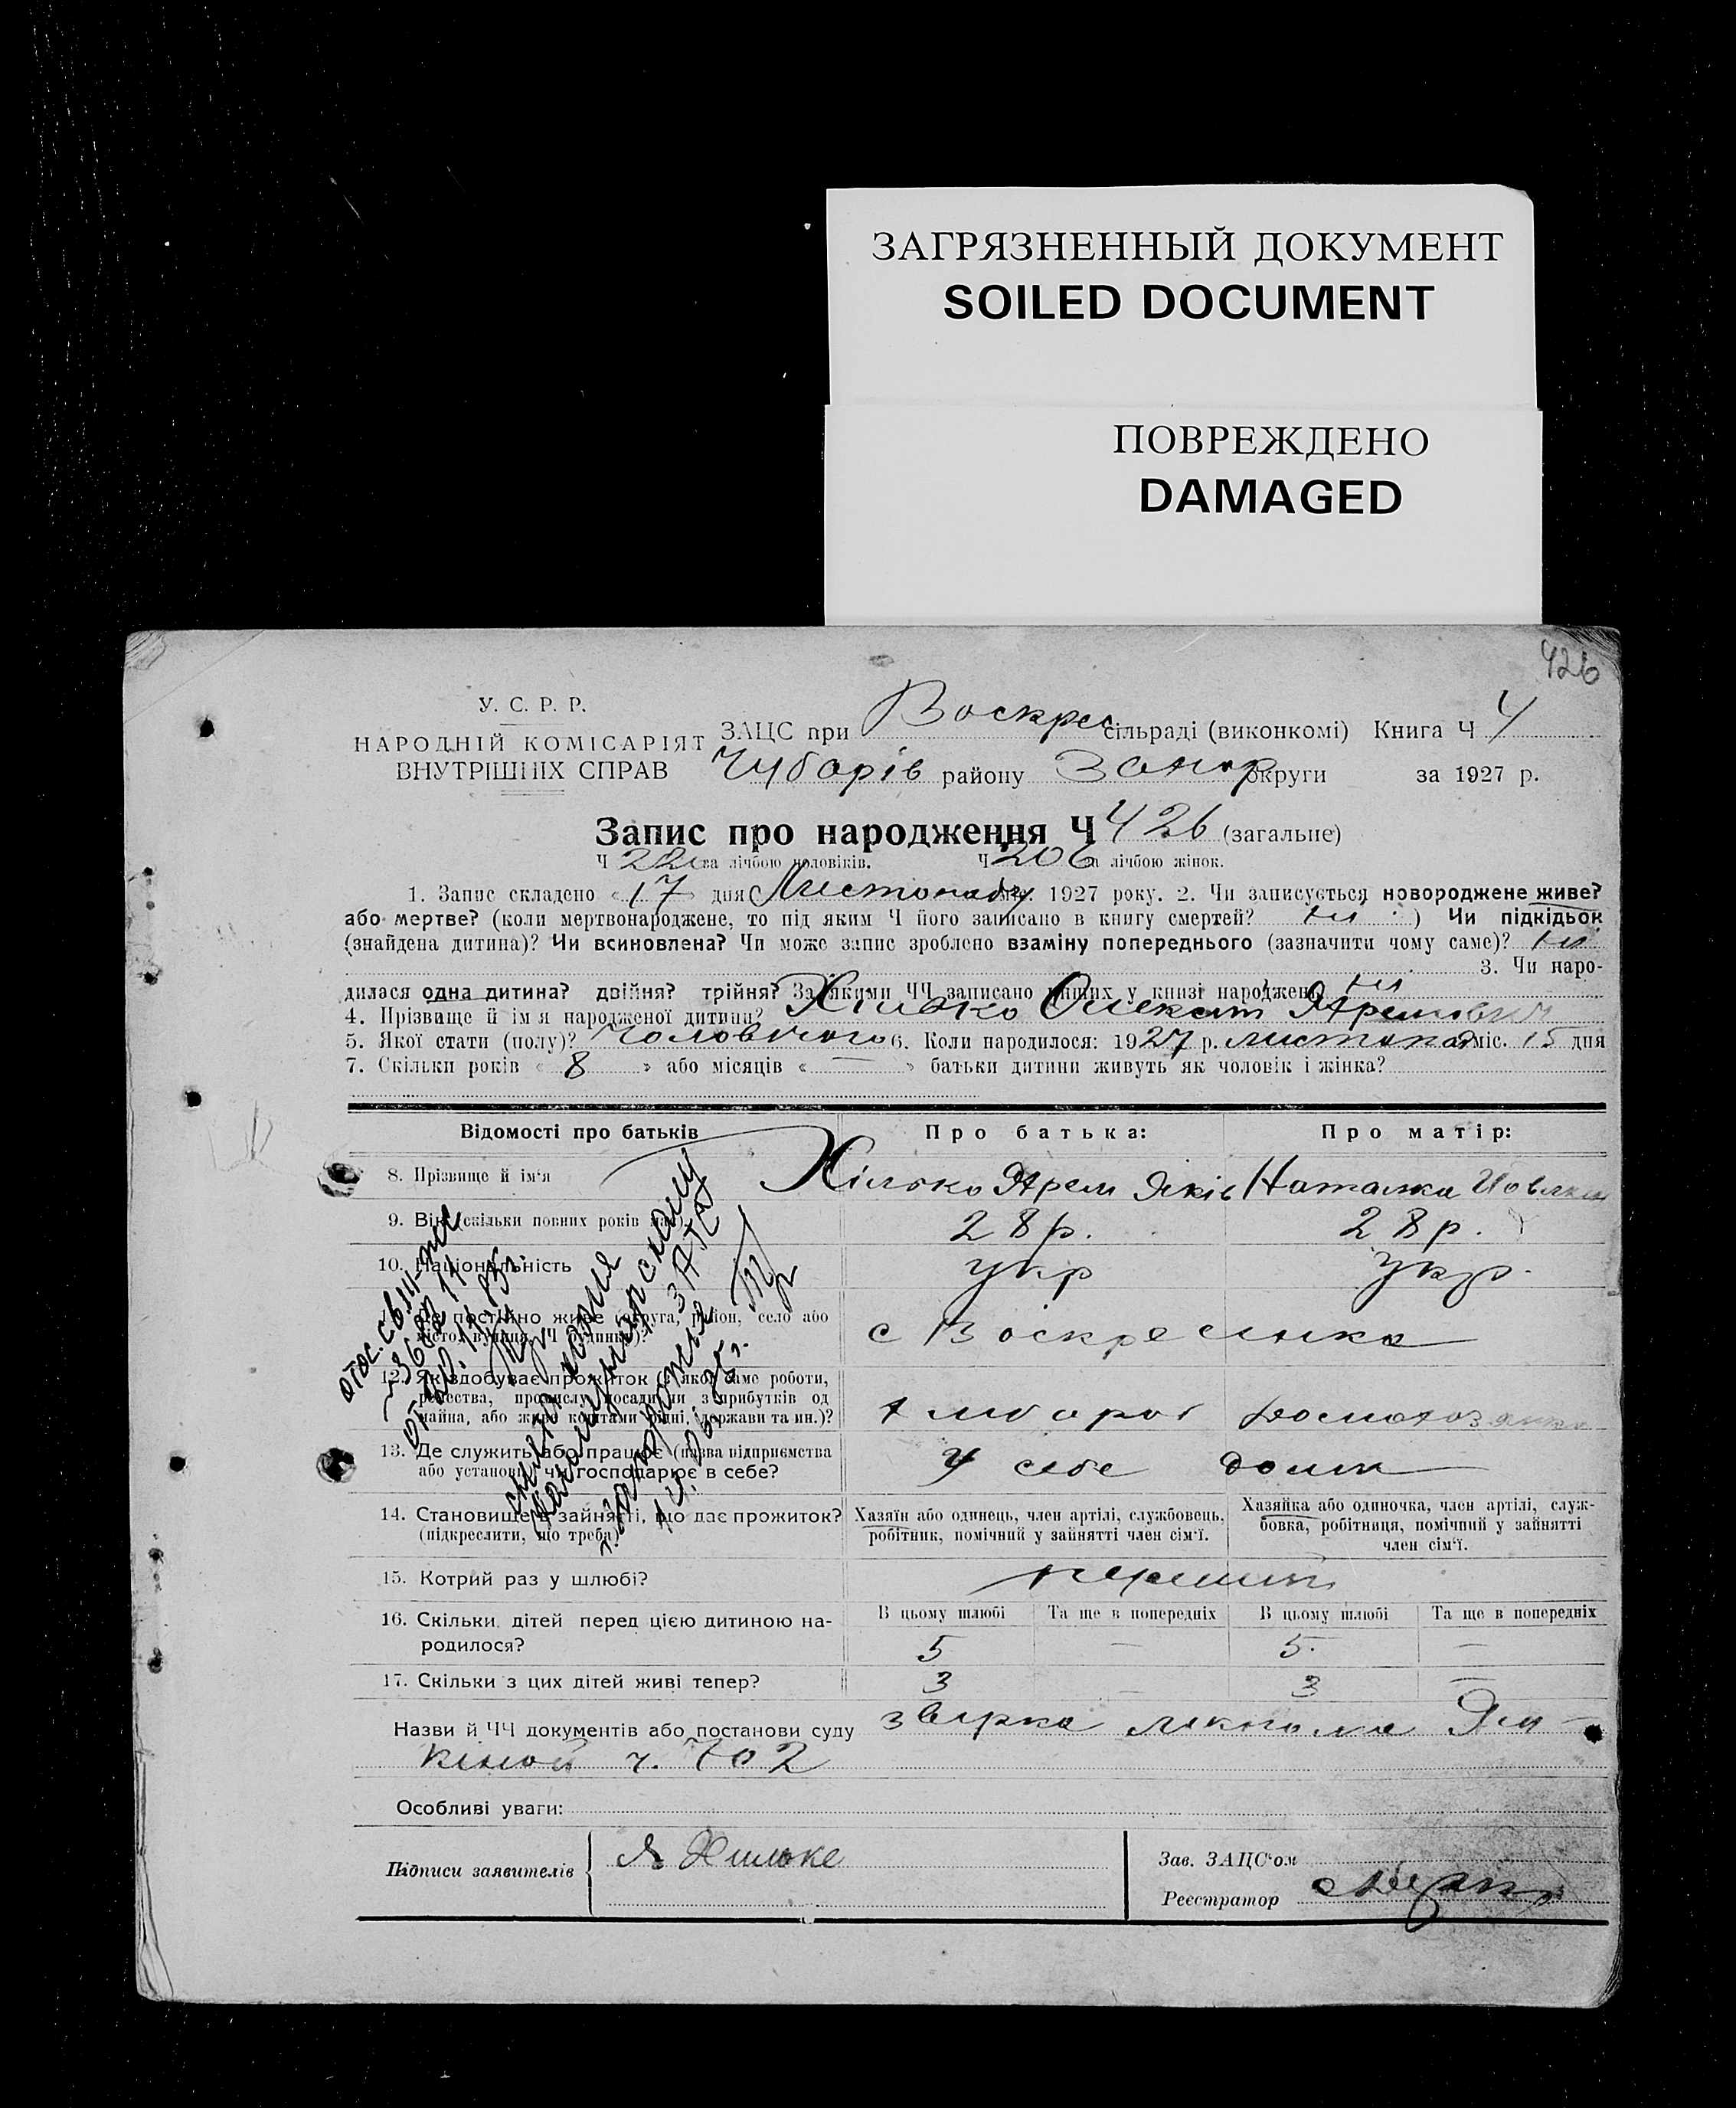 ЗАГРЯЗНЕННЫЙ ДОКУМЕНТ
SOILED DOCUMENT
ПОВРЕЖДЕНО
DAMAGED
426
У. С. Р. Р.
НАРОДНІЙ КОМІСАРІЯТ
ВНУТРІШНІХ СПРАВ
ЗАЦС при Воскрес сільраді (виконкомі) Книга Ч 4
Чубарів району Запор округи за 1927 р.
Запис про народження Ч 426 (загальне)
Ч за лічбою чоловіків. Ч 206 за лічбою жінок.
1. Запис складено « 17 » дня Листопаду міс. 1927 року. 2. Чи записується новороджене живе?
або мертве? (коли мертвонароджене, то під яким Ч його записано в книгу смертей? ні ) Чи підкідьок
(знайдена дитина)? Чи всиновлена? Чи може запис зроблено взаміну попереднього (зазначити чому саме)? ні
3. Чи наро-
дилася одна дитина? двійня? трійня? За якими ЧЧ записано инших у книзі народжень ні
4. Прізвище й ім'я народженої дитини? Хілько Олексат Яремович
5. Якої стати (полу)? Чоловічого 6. Коли народилося: 1927 р. листопад міс. 15 дня
7. Скільки років « 8 » або місяців « — » батьки дитини живуть як чоловік і жінка?
Відомості про батьків
Про батька:
Про матір:
8. Прізвище й ім'я
Хілько Ярем Яків
Наталка
9. Вік (скільки повних років має)
28 р.
28 р.
10. Національність
укр
укр.
11. Де постійно живе (округа, район, село або
місто, вулиця, Ч будинку)?
с Воскресенка
12. Як здобуває прожиток (з якої саме роботи,
ремества, промислу, посади чи з прибутків од
майна, або живе коштами рідні, держави та ин.)?
хлібороб
домогозяйка
13. Де служить або працює (назва підприємства
або установи) чи господарює в себе?
у себе дома
14. Становище в зайнятті, що дає прожиток?
(підкреслити, що треба)
Хазяїн або одинець, член артілі, службовець,
робітник, помічний у зайнятті член сім'ї.
Хазяйка або одиночка, член артілі, служ-
бовка, робітниця, помічний у зайнятті
член сім'ї.
15. Котрий раз у шлюбі?
перший
16. Скільки дітей перед цією дитиною на-
родилося?
В цьому шлюбі
Та ще в попередніх
В цьому шлюбі
Та ще в попередніх
5
—
5
—
17. Скільки з цих дітей живі тепер?
3
—
3
—
Назви й ЧЧ документів або постанови суду
ч. 702
Особливі уваги:
Підписи заявителів
Я Хилько
Зав. ЗАЦС'ом
Реєстратор